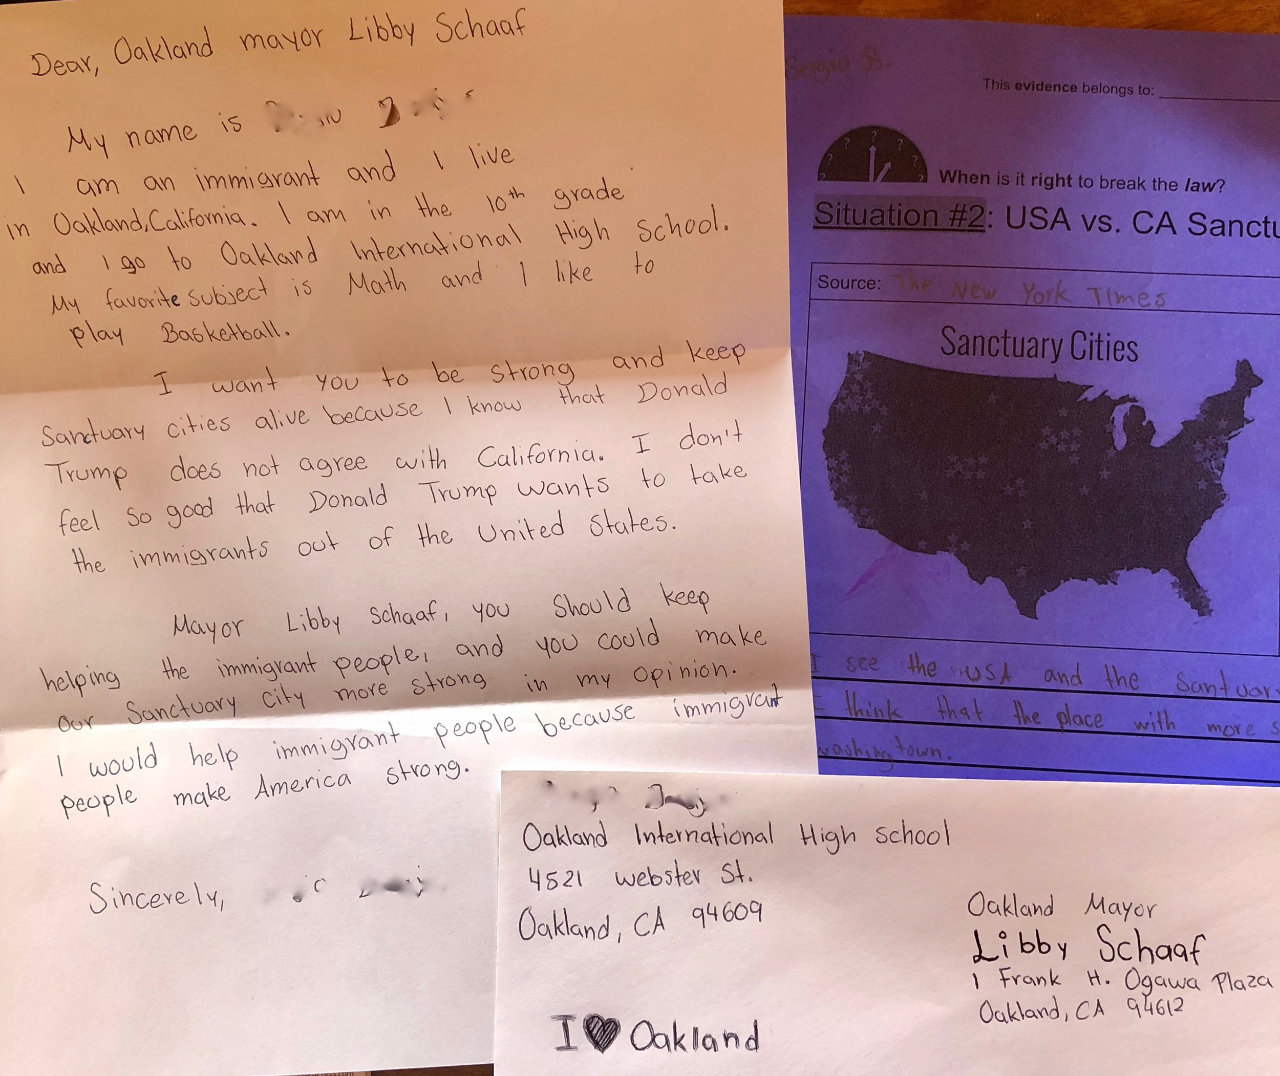 Dear, Oakland mayor Libby Schaaf
My name is
I am an immigrant and I live
in Oakland, California. I am in the 10th grade
and I go to Oakland International High School.
My favorite subject is Math and I like to
play Basketball.
I want you to be strong and keep
Sanctuary cities alive because I know that Donald
Trump does not agree with California. I don't
feel so good that Donald Trump wants to take
the immigrants out of the United States.
Mayor Libby Schaaf, you Should keep
helping the immigrant people, and you could make
our Sanctuary City more strong in my opinion.
I would help immigrant people because immigrant
people make America strong.
Sincerely,
This evidence belongs to:
When is it right to break the law?
Situation #2: USA vs. CA Sanctu
Source: The New York Times
Sanctuary Cities
I see the USA and the Santuary
I think that the place with more s
washing town.
Oakland International High School
4521 Webster St.
Oakland, CA 94609
Oakland Mayor
Libby Schaaf
1 Frank H. Ogawa Plaza
Oakland, CA 94612
I ♥ Oakland